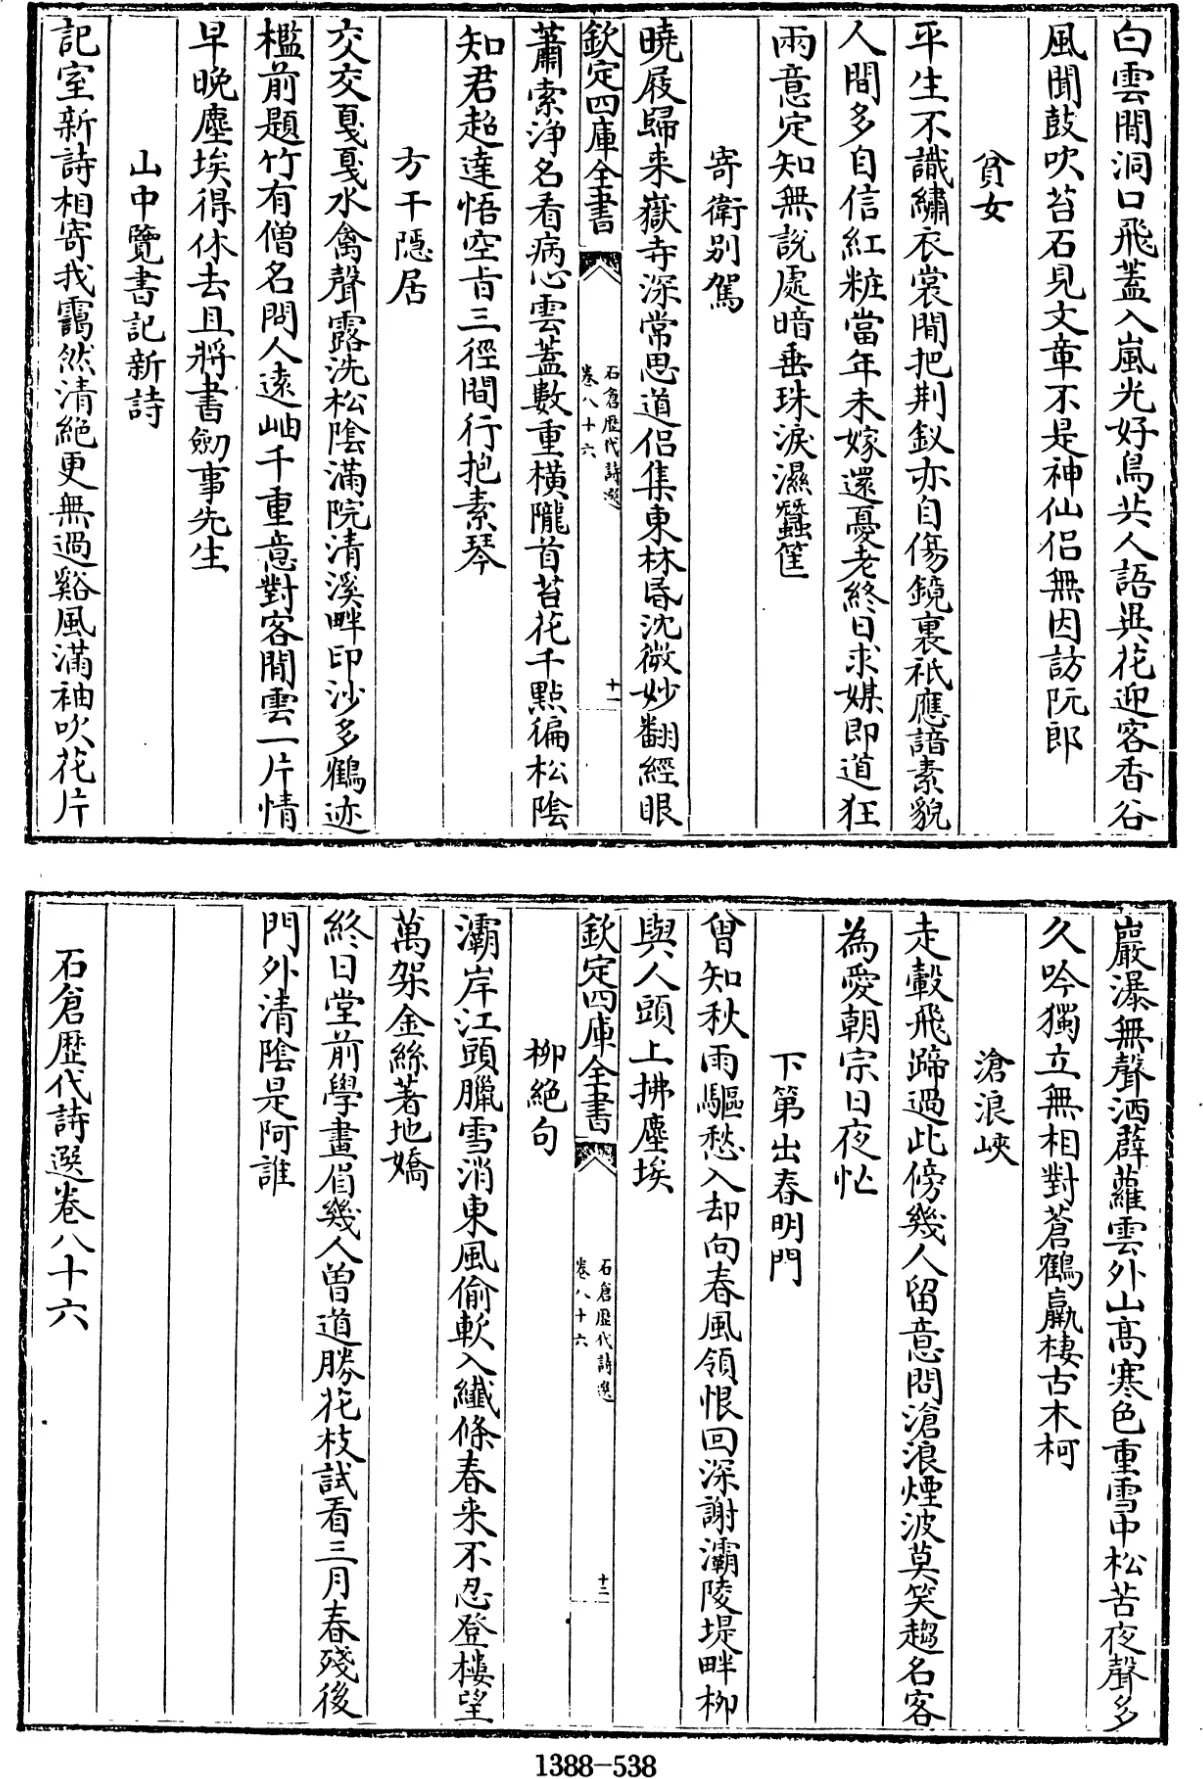 白雲間洞口飛蓋入嵐光好鳥共人語異花迎客香谷
風聞鼓吹苔石見文章不是神仙侣無因訪阮郎
貧女
平生不識繡衣裳間把荆釵亦自傷鏡裏祇應諳素貌
人間多自信紅粧當年未嫁還憂老終日求媒即道狂
兩意定知無説處暗垂珠淚濕蠶筐
寄衛別駕
曉屐歸來嶽寺深常思道侣集東林昏沈微妙翻經眼
欽定四庫全書
石倉歷代詩選
卷八十六
十一
蕭索浄名看病心雲蓋數重横隴首苔花千點徧松陰
知君超達悟空肯三徑間行抱素琴
方干隱居
交交戛戛水禽聲露洗松陰滿院清溪畔印沙多鶴迹
檻前題竹有僧名問人逺岫千重意對客間雲一片情
早晚塵埃得休去且將書劒事先生
山中覽書記新詩
記室新詩相寄我靄然清絶更無過谿風滿袖吹花片
巖瀑無聲洒薜蘿雲外山髙寒色重雪中松苦夜聲多
久吟獨立無相對蒼鶴羸棲古木柯
滄浪峽
走轂飛蹄過此傍幾人留意問滄浪煙波莫笑趨名客
為愛朝宗日夜忙
下第出春明門
曾知秋雨驅愁入却向春風領恨回深謝灞陵堤畔柳
與人頭上拂塵埃
欽定四庫全書
石倉歷代詩選
卷八十六
十二
柳絶句
灞岸江頭臘雪消東風偷軟入纎條春來不忍登樓望
萬架金絲著地嬌
終日堂前學畫眉幾人曾道勝花枝試看三月春殘後
門外清陰是阿誰
石倉歷代詩選卷八十六
1388-538